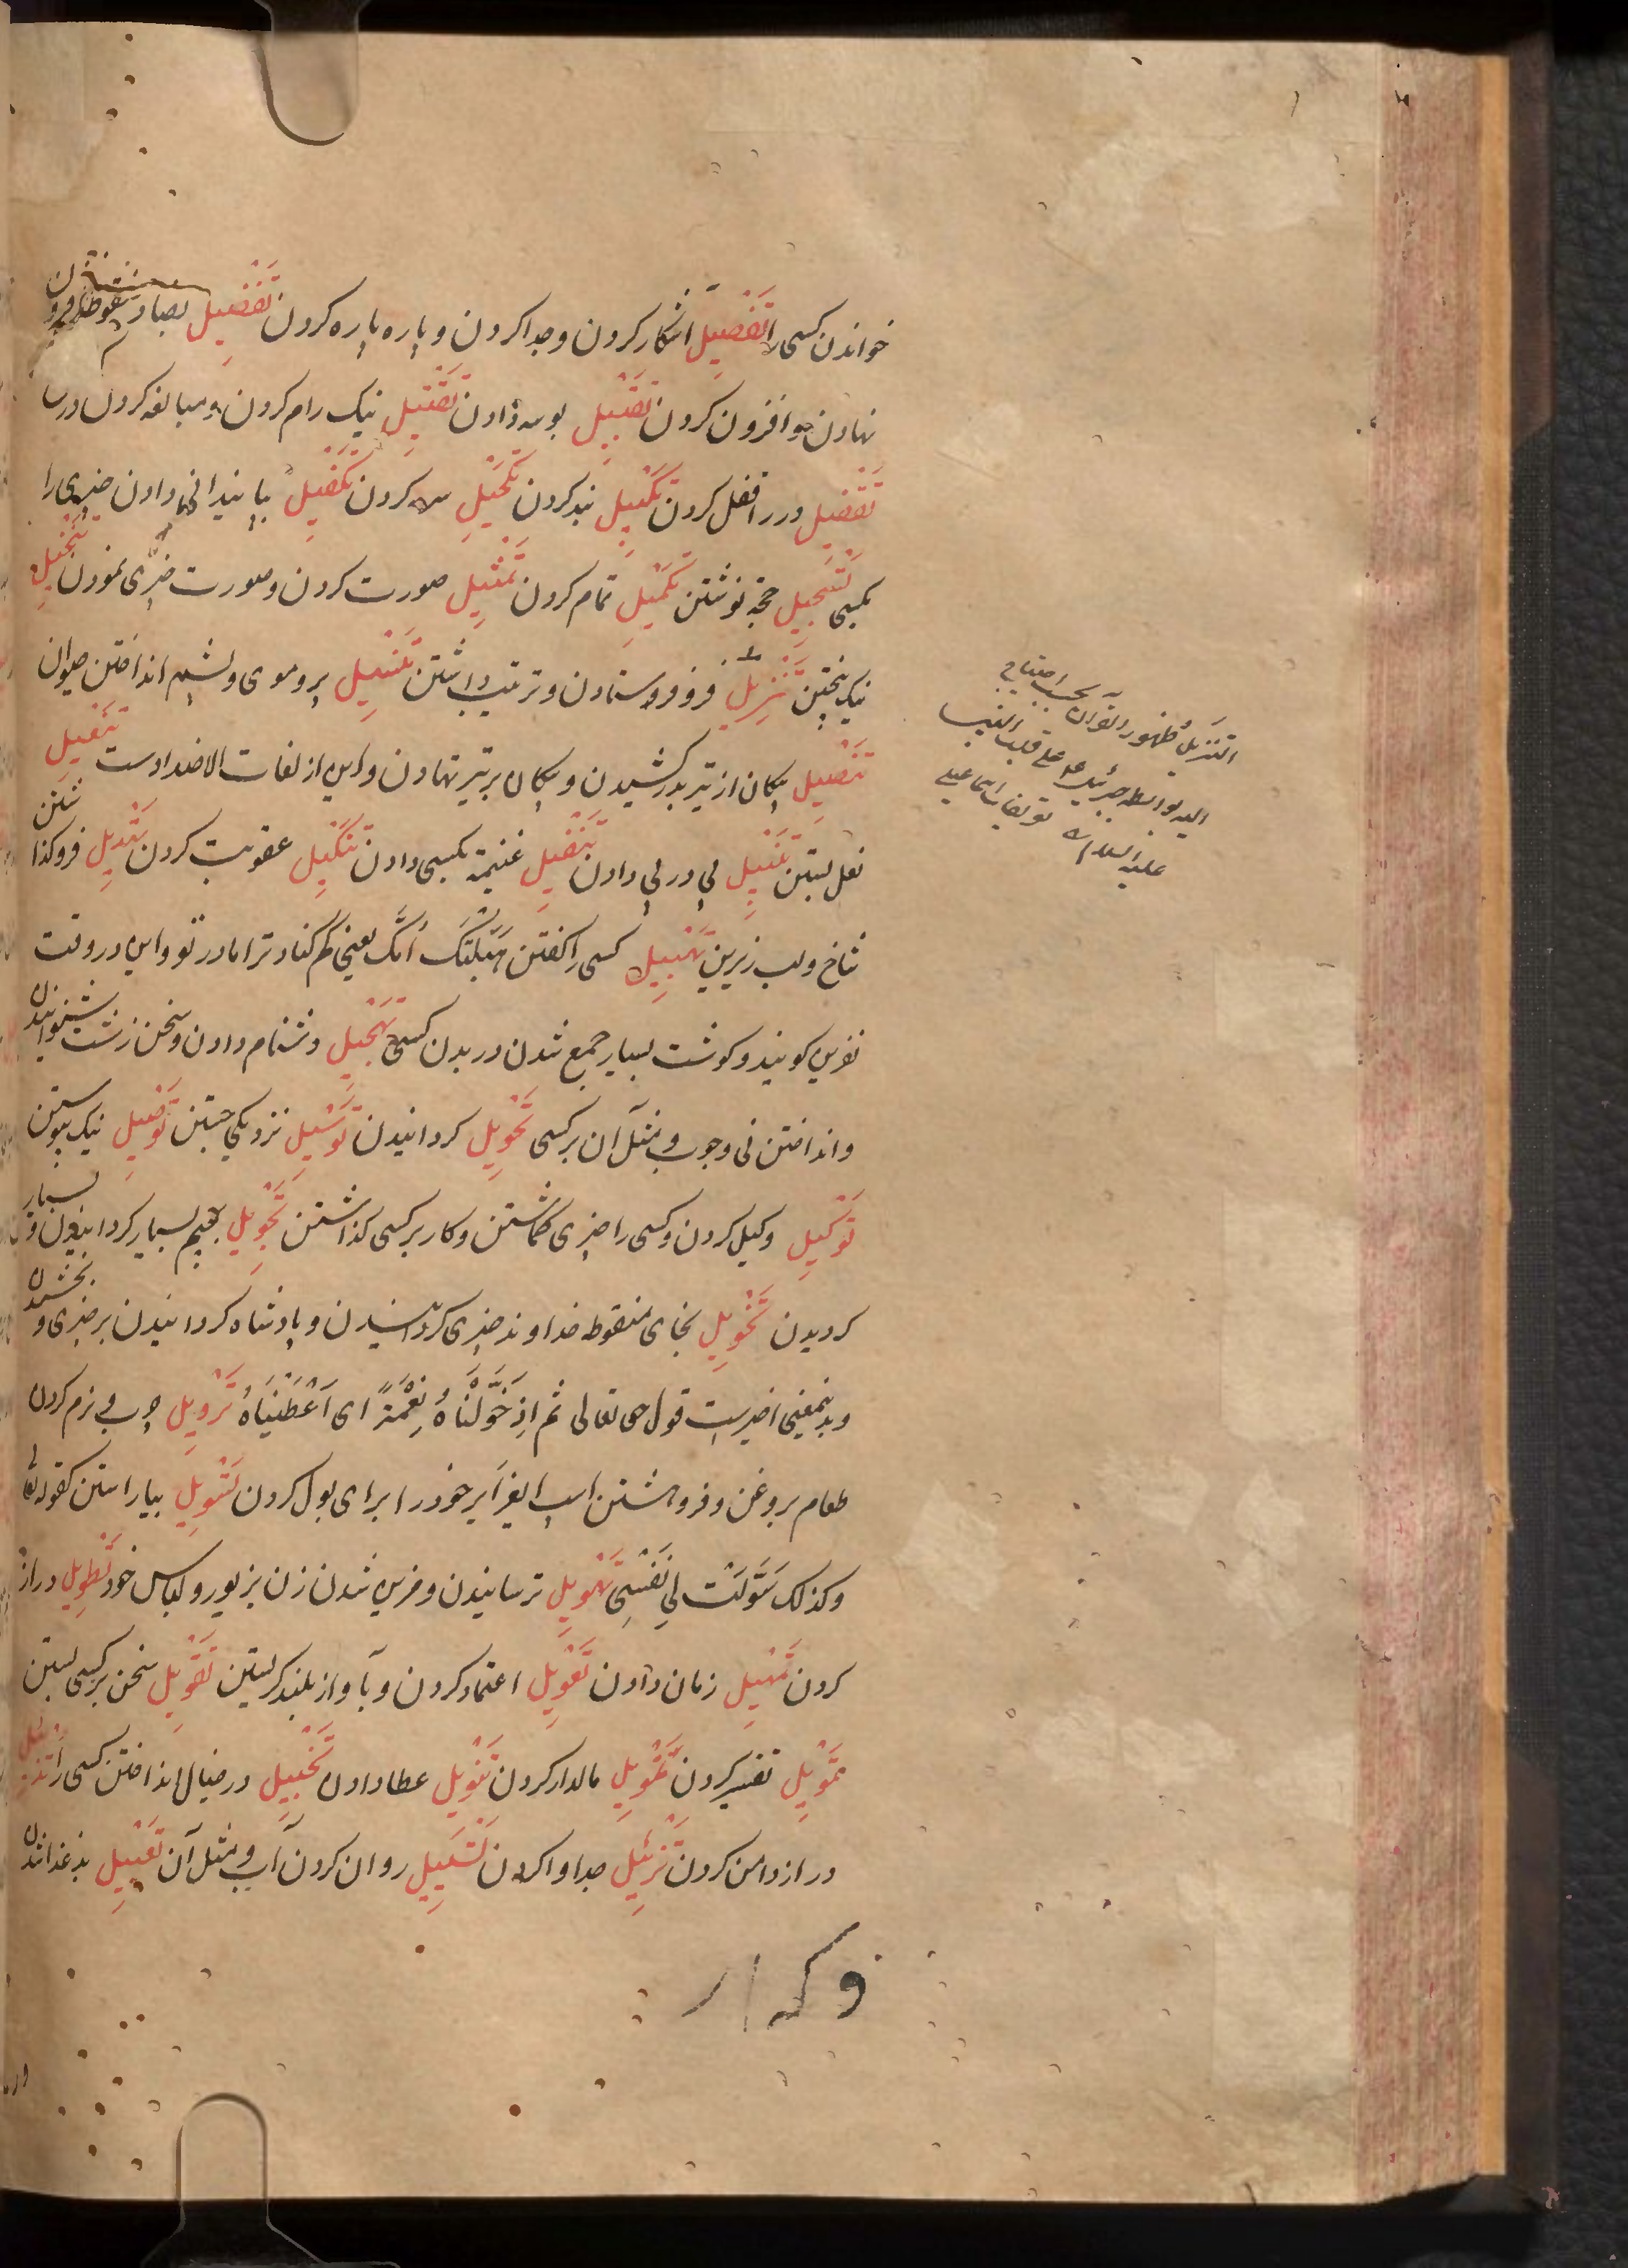 خواندن کسی را تَفْصِیل آشکار کردن و جدا کردن و پاره پاره کردن تَفْضِیل بضاد منقوطه فزونی
نهادن و افزون کردن تَقْبِیل بوسه دادن تَقْتِیل نیک رام کردن و مبالغه کردن در
تَقْفِیل در را قفل کردن تَکْبِیل بند کردن تَکْحِیل سرمه کردن تَکْفِیل پایندانی دادن چیزی را
بکسی تَسْجِیل حجة نوشتن تَکْمِیل تمام کردن تَمْثِیل صورت کردن و صورت چیزی نمودن تَنْخِیل
نیک بیختن تَنْزِیل فرو فرستادن و ترتیب داشتن تَنْسِیل پر و موی و پشم انداختن حیوان
تَنْصِیل پیکان از تیر بدر کشیدن و پیکان بر تیر نهادن و این از لغات الاضدادست تَنْعِیل
نعل بستن پی در پی دادن تَنْفِیل غنیمة بکسی دادن تَنْکِیل عقوبت کردن تَهْدِیل فروگذاشتن
شاخ و لب زیرین تَهْبِیل کسی را گفتن هَبَّلَتْکَ اُمُّکَ یعنی گم کناد ترا مادر تو و این در وقت
نفرین گویند و گوشت بسیار جمع شدن در بدن کسی تَهْجِیل دشنام دادن و سخن زشت شنوانیدن
و انداختن نی و چوب و مثل آن بر کسی تَحْوِیل گردانیدن تَوْسِیل نزدیکی جستن تَوْصِیل نیک پیوستن
تَوْکِیل وکیل کردن و کسی را چیزی گماشتن و کار بر کسی گذاشتن تَجْوِیل بجیم بسیار گردانیدن و بسیار
گردیدن تَخْوِیل بخای منقوطه خداوند چیزی گردانیدن و پادشاه گردانیدن بر چیزی و بخشیدن
و بدینمعنی اخیرست قول حق تعالی ثم اذِ خَوَّلْنَاهُ نِعْمَةً ای اَعْطَیْنَاهُ تَرْوِیل چرب و نرم کردن
طعام بروغن و فروهشتن اسپ ایر خود را برای بول کردن تَسْوِیل بیاراستن کقوله تعا
وکذلک سَوَّلَتْ لِی نَفْسِی تَهْوِیل ترسانیدن و مزین شدن زن بزیور و لباس خود تَطْوِیل دراز
کردن تَمْهِیل زمان دادن تَعْوِیل اعتماد کردن و بآواز بلند گریستن تَقْوِیل سخن بر کسی بستن
تفسیر کردن تَمْوِیل مالدار کردن تَنْوِیل عطا دادن تَخْیِیل در خیال انداختن کسی را تَذْیِیل
دراز دامن کردن تَزْیِیل جدا وا کردن تَسْیِیل روان کردن آب و مثل آن
التنزیل ظهور القرآن بحسب احتیاج
الیه بواسطه جبرئیل ع م علی قلب النبی
علیه السلام تعریفات